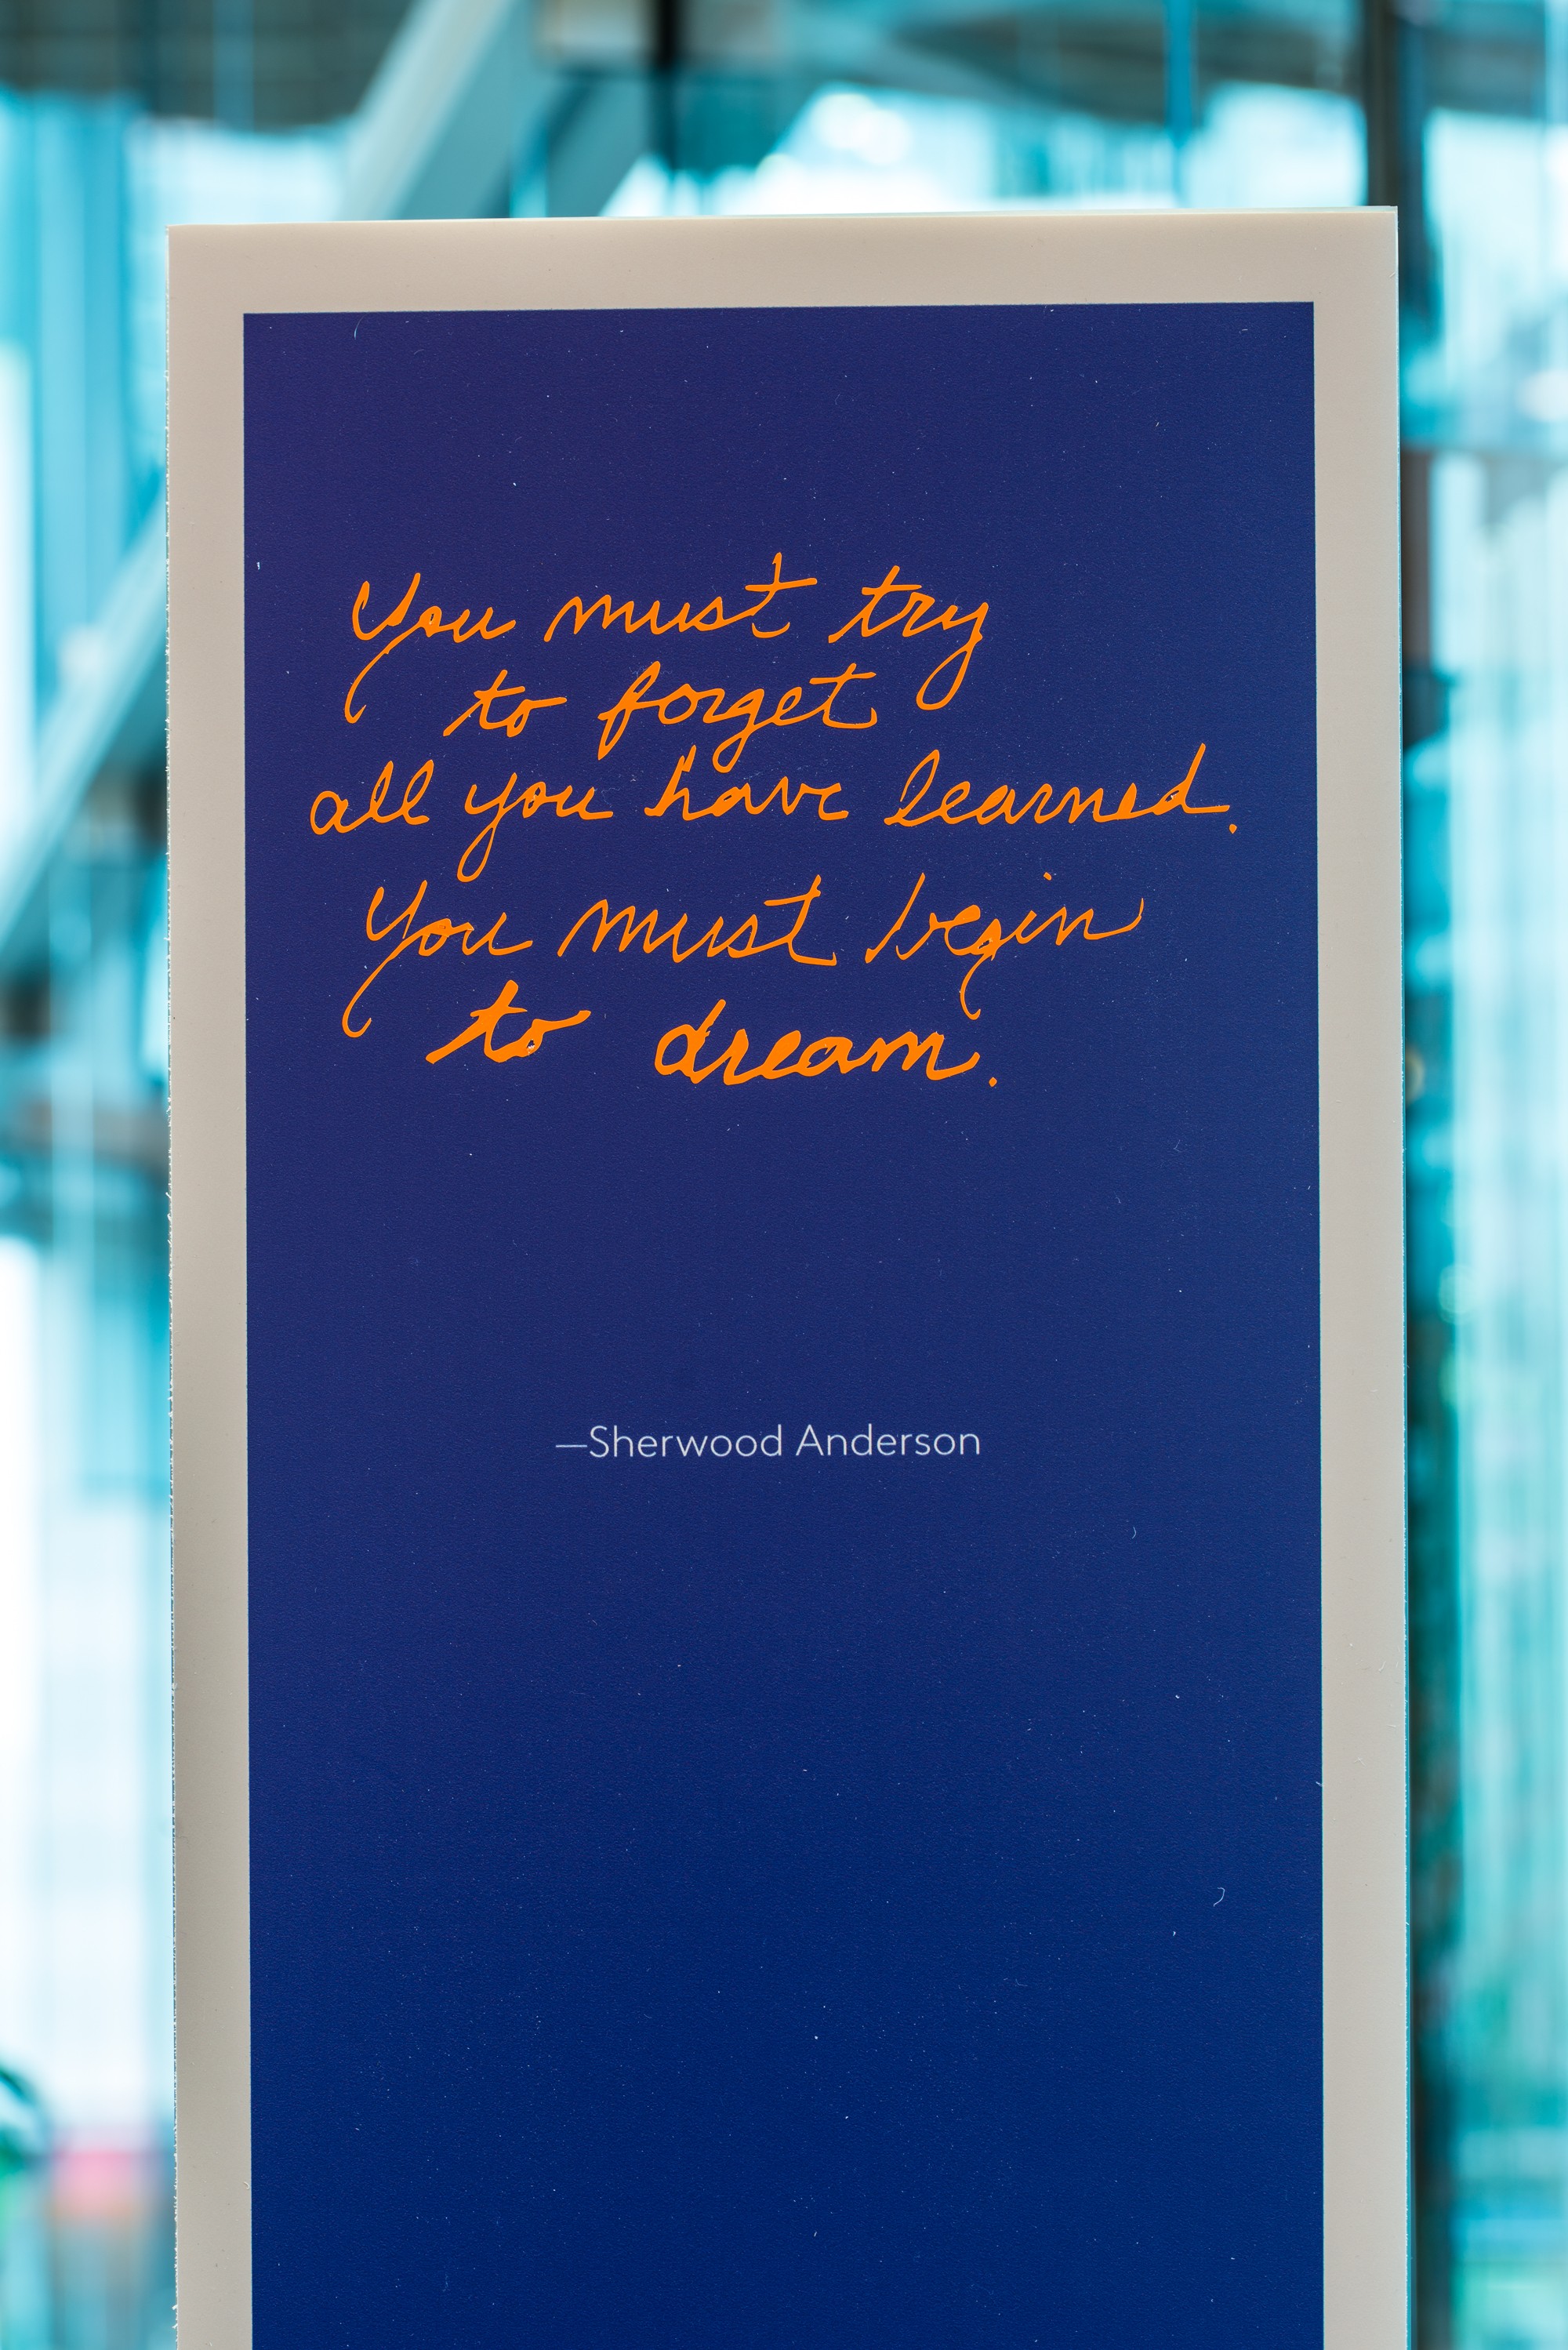 You must try
to forget
all you have learned.
You must begin
to dream.
—Sherwood Anderson